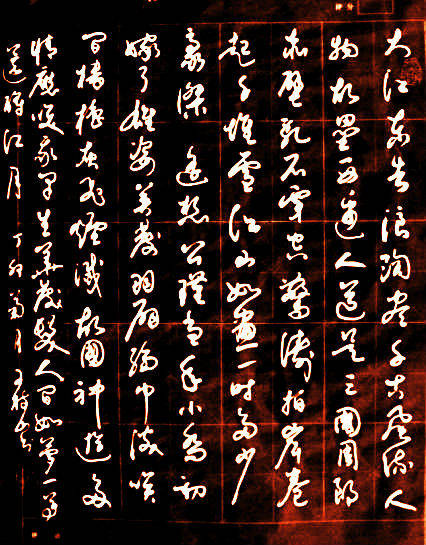 大江東去浪淘盡千古風流人
物故壘西邊人道是三國周郎
赤壁亂石穿空驚濤拍岸卷
起千堆雪江山如畫一時多少
豪傑 遥想公瑾當年小喬初
嫁了雄姿英發羽扇綸巾談笑
間檣櫓灰飛煙滅故國神遊多
情應笑我早生華髮人間如夢一尊
還酹江月 丁卯菊月 王